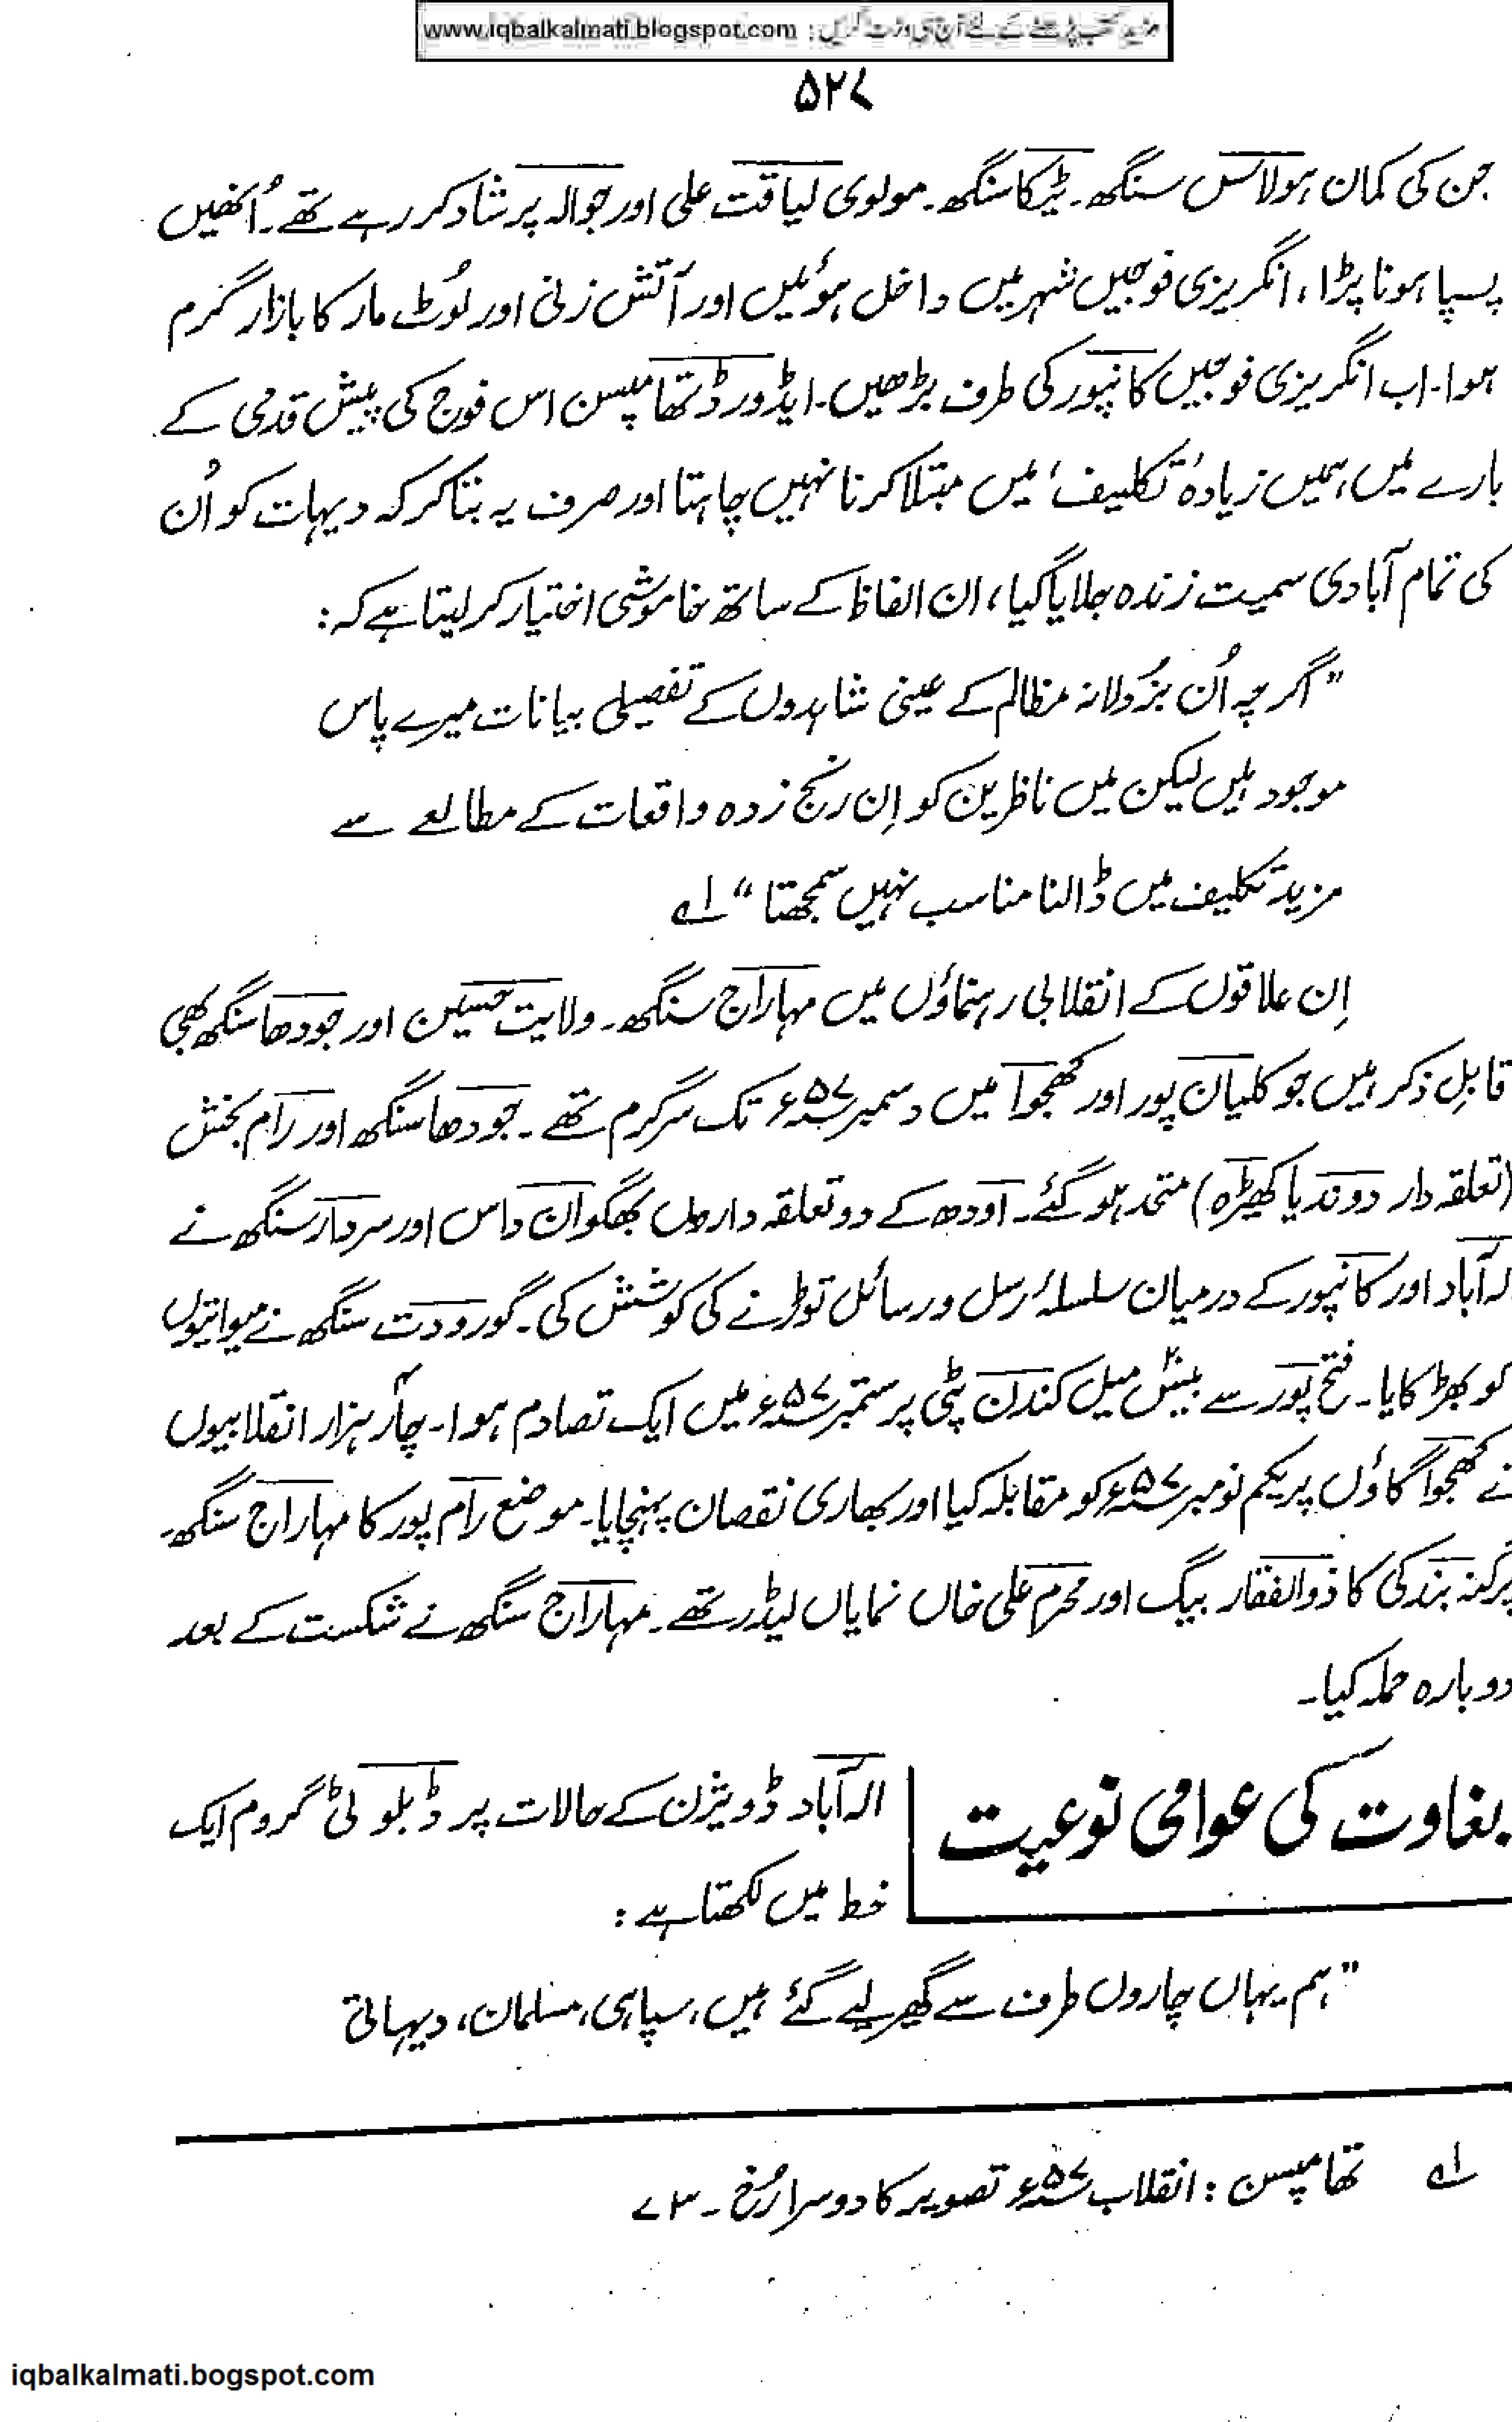 مزید کتب پڑھنے کے لئے آج ہی وزٹ کریں : www.iqbalkalmati.blogspot.com
۵۲۷
جن کی کمان ہولاس سنگھ۔ ٹیکا سنگھ۔ مولوی لیاقت علی اور جوالہ پرشاد کر رہے تھے۔ اُنھیں
پسپا ہونا پڑا، انگریزی فوجیں شہر میں داخل ہوئیں اور آتش زنی اور لُوٹ مار کا بازار گرم
ہوا۔ اب انگریزی فوجیں کانپور کی طرف بڑھیں۔ ایڈورڈ تھامپسن اس فوج کی پیش قدمی کے
بارے میں ہمیں زیادہ 'تکلیف' میں مبتلا کرنا نہیں چاہتا اور صرف یہ بتا کر کہ دیہات کو اُن
کی تمام آبادی سمیت زندہ جلایا گیا، ان الفاظ کے ساتھ خاموشی اختیار کر لیتا ہے کہ:
"اگرچہ اُن بزدلانہ مظالم کے عینی شاہدوں کے تفصیلی بیانات میرے پاس
موجود ہیں لیکن میں ناظرین کو اِن رنج زدہ واقعات کے مطالعے سے
مزید تکلیف میں ڈالنا مناسب نہیں سمجھتا" ؎۱
اِن علاقوں کے انقلابی رہنماؤں میں مہاراج سنگھ۔ ولایت حسین اور جودھا سنگھ بھی
قابلِ ذکر ہیں جو کلیان پور اور کھجوا میں دسمبر ۵۷ء تک سرگرم تھے۔ جودھا سنگھ اور رام بخش
(تعلقہ دار دوندیا کھیڑہ) متحد ہو گئے۔ اودھ کے دو تعلقہ داروں بھگوان داس اور سردار سنگھ نے
الہ آباد اور کانپور کے درمیان سلسلۂ رسل و رسائل توڑنے کی کوشش کی۔ گورودت سنگھ نے میواتیوں
کو بھڑکایا۔ فتح پور سے بیس۲۰ میل کندن پٹی پر ستمبر ۵۷ء میں ایک تصادم ہوا۔ چار۴ ہزار انقلابیوں
نے کھجوا گاؤں پر یکم نومبر ۵۷ء کو مقابلہ کیا اور بھاری نقصان پہنچایا۔ موضع رام پور کا مہاراج سنگھ۔
پرگنہ بندکی کا ذوالفقار بیگ اور محرم علی خاں نمایاں لیڈر تھے۔ مہاراج سنگھ نے شکست کے بعد
دوبارہ حملہ کیا۔
بغاوت کی عوامی نوعیت
الہ آباد ڈویژن کے حالات پر ڈبلو ٹی گروم ایک
خط میں لکھتا ہے:
"ہم یہاں چاروں طرف سے گھر لیے گئے ہیں، سپاہی، مسلمان، دیہاتی
؎۱ تھامپسن: انقلاب ۵۷ء تصویر کا دوسرا رُخ۔ ۷۳
iqbalkalmati.bogspot.com